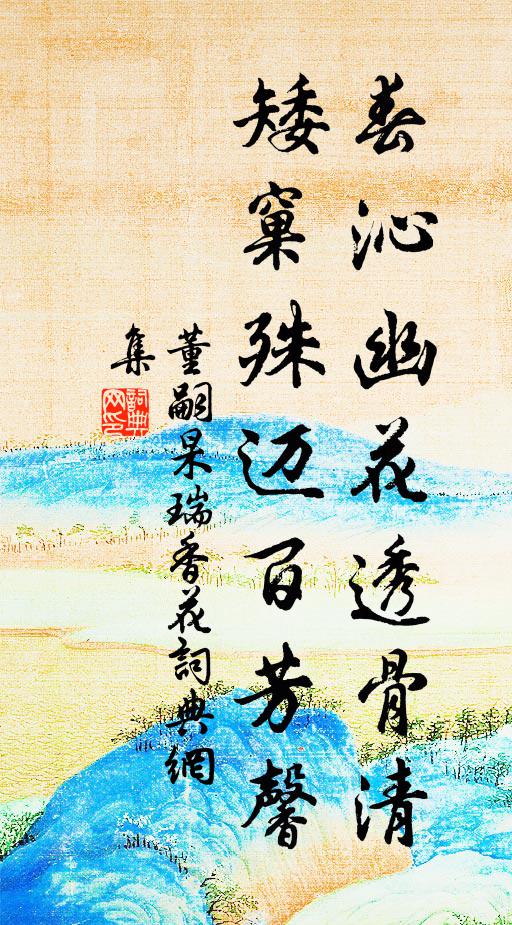 春沁幽花透骨清
矮窠殊迈百芳馨
董嗣杲瑞香花詞典網
集
詞典网印